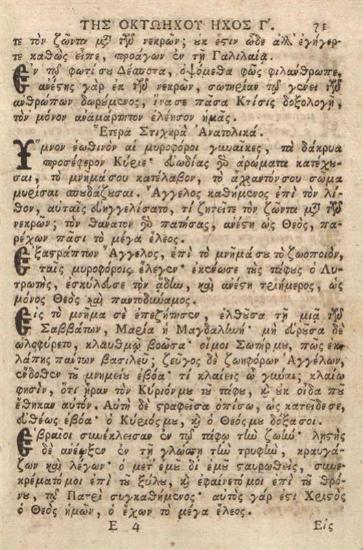 ΤΗΣ ΟΚΤΩΗΧΟΥ ΗΧΟΣ Γ΄. 71
τε τὸν ζῶντα μετὰ τῶν νεκρῶν; οὐκ ἔστιν ὧδε ἀλλ' ἐγήγερ-
τε καθὼς εἶπε, προάγων ἐν τῇ Γαλιλαίᾳ.
Ἐν τῷ φωτί σου Δέσποτα, ὀψόμεθα φῶς φιλάνθρωπε,
ἀνέστης γὰρ ἐκ τῶν νεκρῶν, σωτηρίαν τῷ γένει τῶν
ἀνθρώπων δωρούμενος, ἵνα σε πᾶσα Κτίσις δοξολογῇ,
τὸν μόνον ἀναμάρτητον ἐλέησον ἡμᾶς.
Ἕτερα Στιχηρὰ Ἀνατολικά.
Ὕμνον ἑωθινὸν αἱ μυροφόροι γυναῖκες, τὰ δάκρυα
προσέφερον Κύριε· εὐωδίας γὰρ ἀρώματα κατέχου-
σαι, τὸ μνῆμά σου κατέλαβον, τὸ ἄχραντόν σου σῶμα
μυρίσαι σπουδάζουσαι. Ἄγγελος καθήμενος ἐπὶ τὸν λί-
θον, αὐταῖς εὐηγγελίσατο, τί ζητεῖτε τὸν ζῶντα μετὰ τῶν
νεκρῶν; τὸν θάνατον γὰρ πατήσας, ἀνέστη ὡς Θεός, πα-
ρέχων πᾶσι τὸ μέγα ἔλεος.
Ἐξαστράπτων Ἄγγελος, ἐπὶ τὸ μνῆμά σου τὸ ζωοποιόν,
ταῖς μυροφόροις ἔλεγεν· ἐκένωσε τοὺς τάφους ὁ Λυ-
τρωτής, ἐσκύλευσε τὸν ᾅδην, καὶ ἀνέστη τριήμερος, ὡς
μόνος Θεὸς καὶ παντοδύναμος.
Εἰς τὸ μνῆμά σε ἐπεζήτησεν, ἐλθοῦσα τῇ μιᾷ τῶν
Σαββάτων, Μαρία ἡ Μαγδαληνή· μὴ εὑροῦσα δὲ
ὠλοφύρετο, κλαυθμῷ βοῶσα· οἴμοι Σωτήρ μου, πῶς ἐκ-
λάπης πάντων βασιλεῦ; ζεῦγος δὲ ζωηφόρων Ἀγγέλων,
ἔνδοθεν τοῦ μνημείου ἐβόα· τί κλαίεις ὦ γύναι; κλαίω
φησίν, ὅτι ἦραν τὸν Κύριόν μου τοῦ τάφου, καὶ οὐκ οἶδα ποῦ
ἔθηκαν αὐτόν. Αὐτὴ δὲ στραφεῖσα ὀπίσω, ὡς κατεῖδέ σε,
εὐθέως ἐβόα· ὁ Κύριός μου, καὶ ὁ Θεός μου δόξα σοι.
Ἑβραῖοι συνέκλεισαν ἐν τῷ τάφῳ τὴν ζωήν· λῃστὴς
δὲ ἀνέῳξεν ἐν τῇ γλώσσῃ τὴν τρυφήν, κραυγά-
ζων καὶ λέγων· ὁ μετ' ἐμοῦ δι' ἐμὲ σταυρωθείς, συνε-
κρέματό μοι ἐπὶ τοῦ ξύλου, καὶ ἐφαίνετό μοι ἐπὶ τοῦ θρό-
νου, τῷ Πατρὶ συγκαθήμενος· αὐτὸς γάρ ἐστι Χριστὸς
ὁ Θεὸς ἡμῶν, ὁ ἔχων τὸ μέγα ἔλεος.
Ε 4 Εἰς